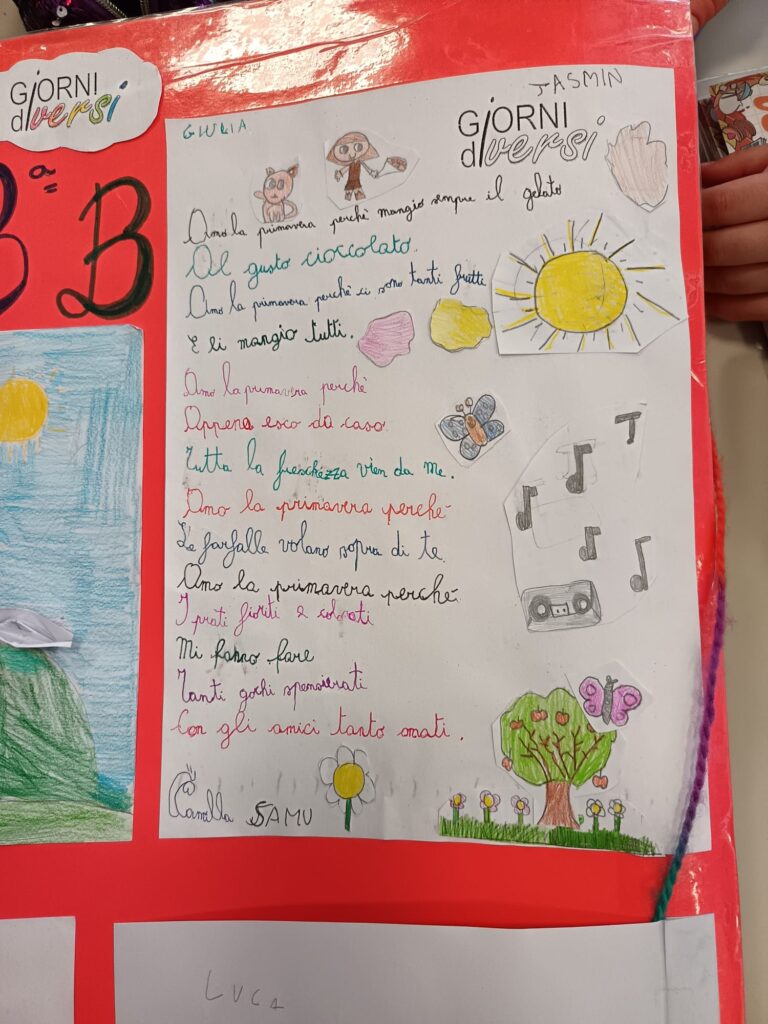 GIORNI
dIversi
B ª
B
GIULIA
JASMIN
GIORNI
dIversi
Amo la primavera perchè mangio sempre il gelato
Al gusto cioccolato.
Amo la primavera perchè ci sono tanti frutti
E li mangio tutti.
Amo la primavera perchè
Appena esco da casa
Tutta la freschezza vien da me.
Amo la primavera perchè
Le farfalle volano sopra di te
Amo la primavera perchè
I prati fioriti e colorati
Mi fanno fare
Tanti gochi spensierati
Con gli amici tanto amati.
Camilla SAMU
LUCA